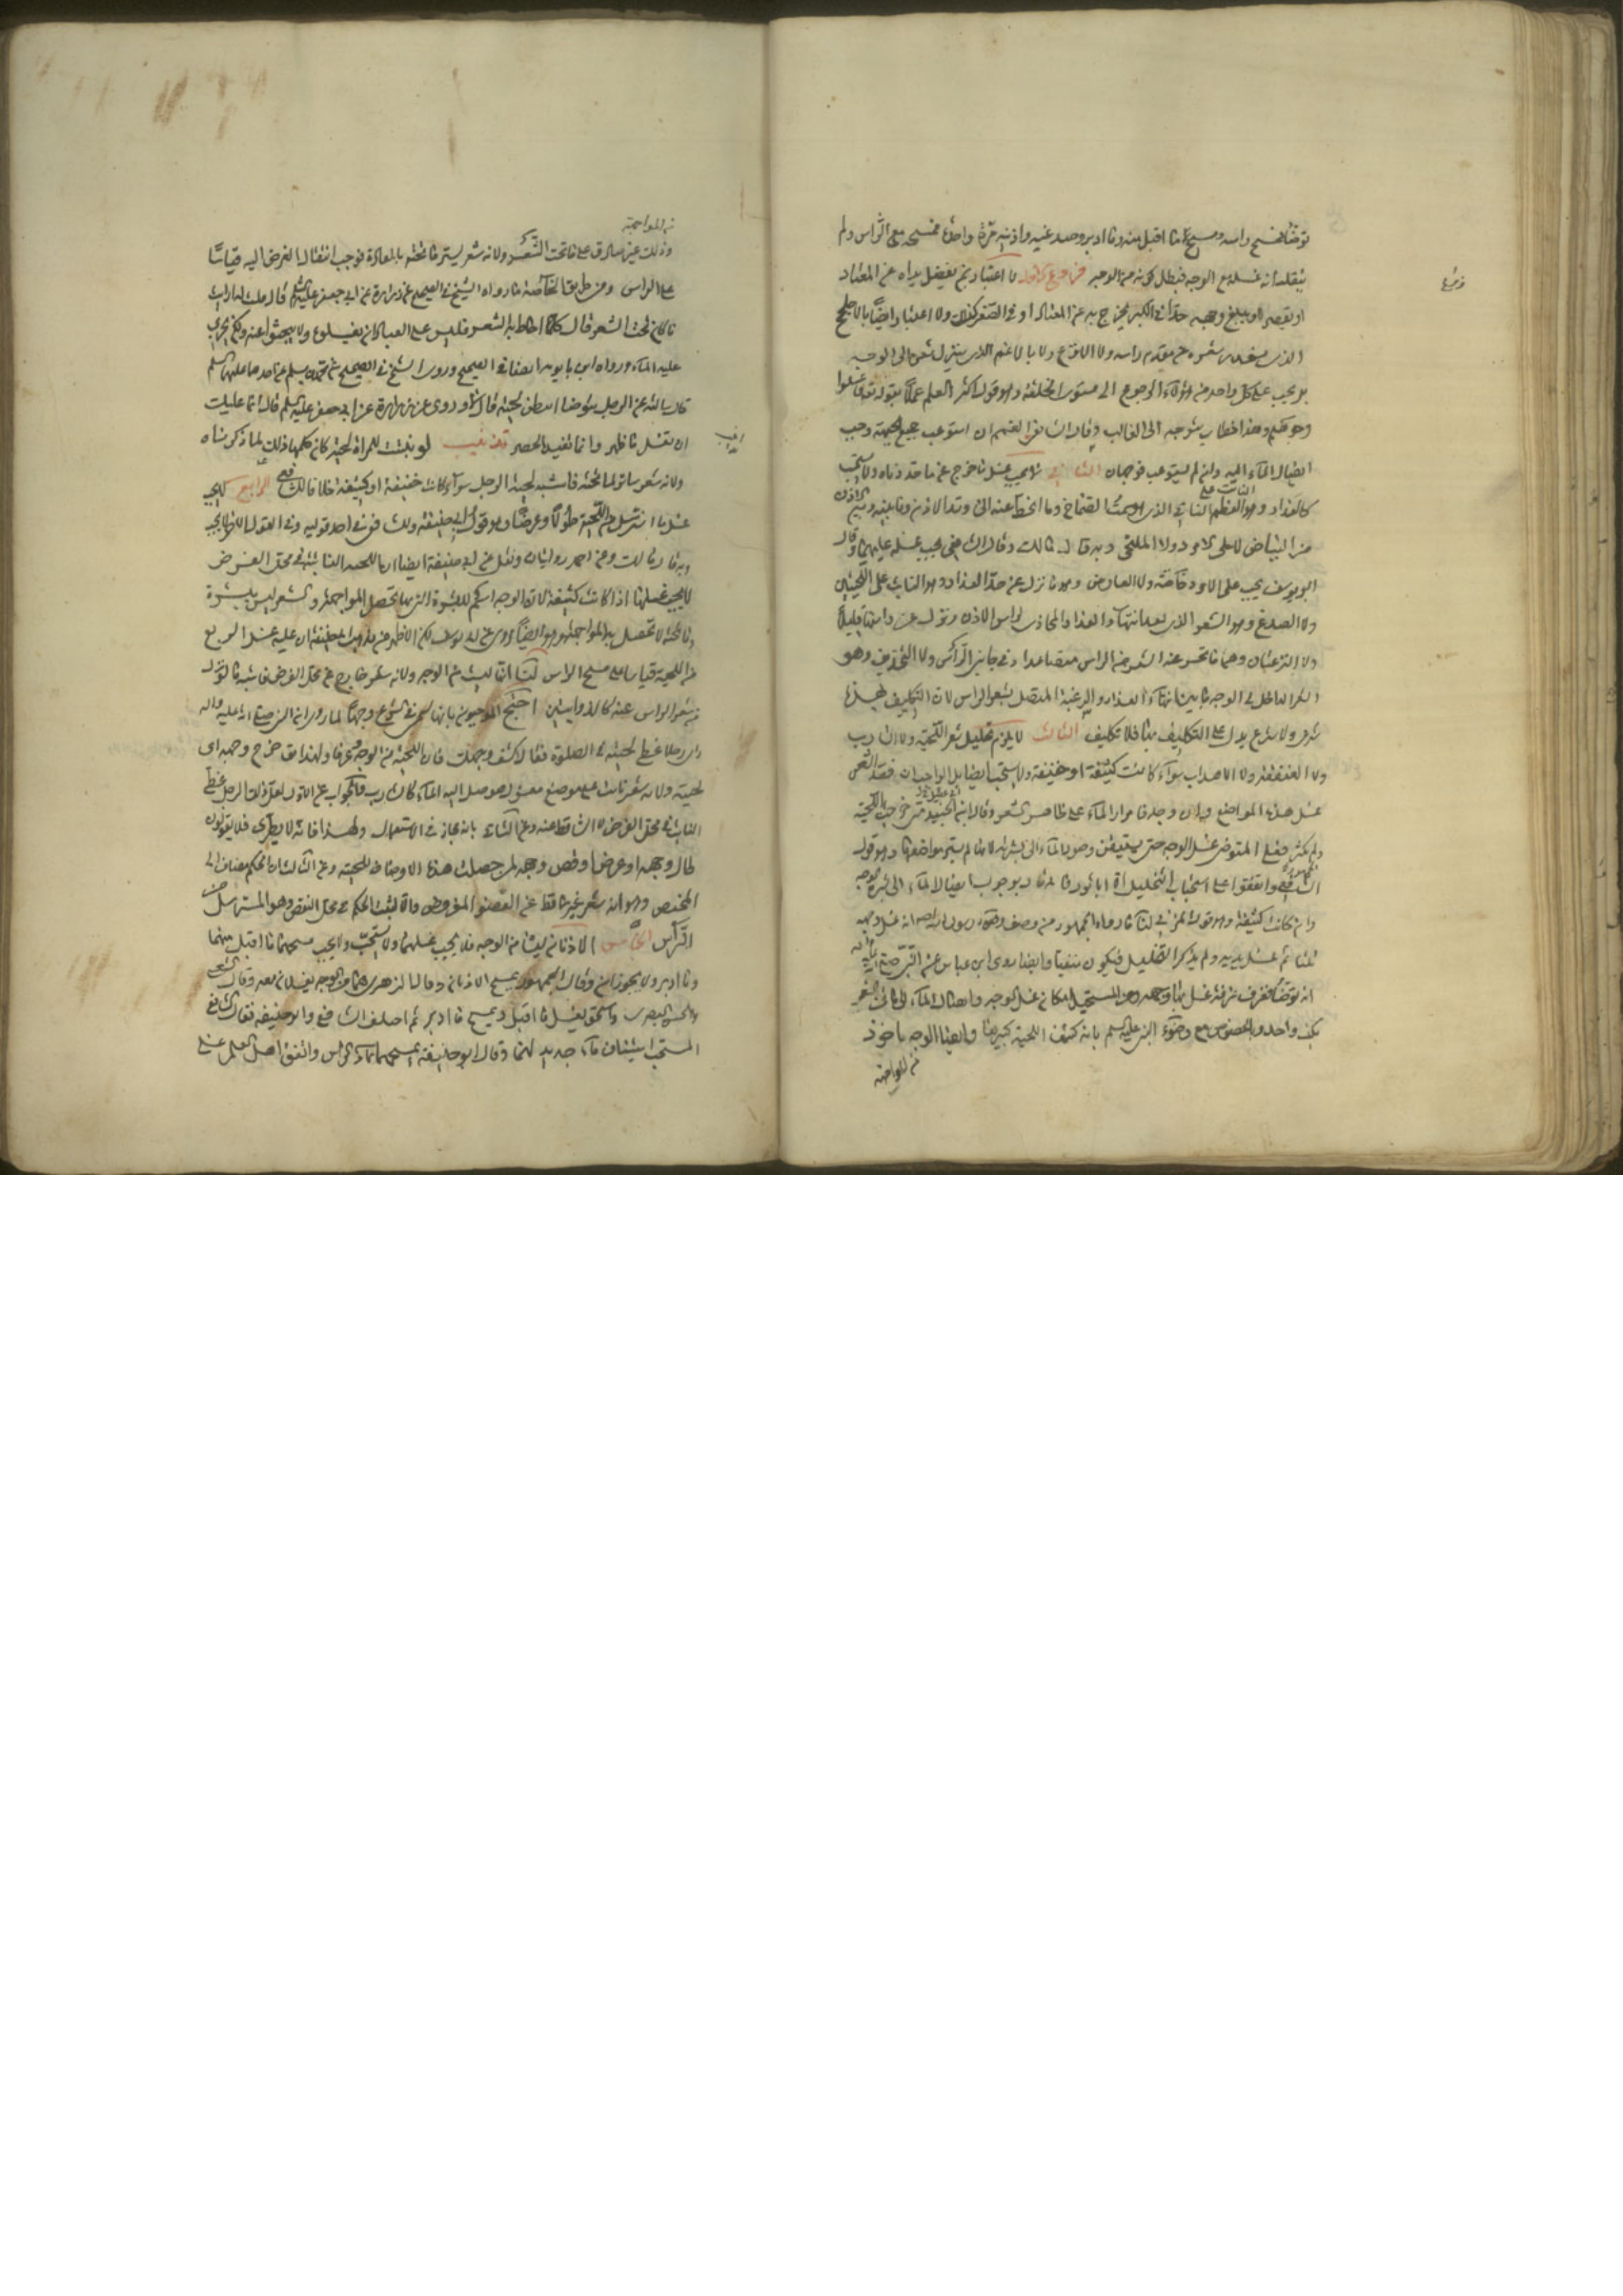 توضأ فمسح راسه ومسح ما اقبل منه وما ادبر وصدغيه واذنيه مرة واحدة فمسحه مع الراس ولم
ينقل انه غسله مع الوجه فبطل كونه من الوجه فروع الاول لا اعتبار بمن يفضل يداه عن المعتاد
فروع
او يقصر او يبلغ وجهه حدا في الكبر يخرج به عن المعتاد او في الصغر كذلك ولا اعتبار ايضا بالاصلح
الذي شعره من مقدم راسه ولا الاقرع ولا بالاغم الذي ينزل شعره الى الوجه
بل يجب على كل واحد من هؤلاء الرجوع الى مستوى الخلقة وهو قول اكثر اهل العلم عملا بقوله تعالى فاغسلوا
وجوهكم وهذا خطاب يتوجه الى الغالب وقال الشافعي الغمم ان استوعب جميع الجبهة وجب
ايصال الماء اليه وان لم يستوعب فوجهان الثاني لا يجب غسل ما خرج عما حددناه ولا يستحب
كالعذار وهو النابت على العظم الناتي الذي هو سمت الصماخ وما انحط عنه الى وتد الاذن وما بينه وبين الاذن
من البياض لا على الامرد ولا الملتحي وبه قال مالك وقال الشافعي يجب غسله عليهما وقال
ابو يوسف يجب على الامرد خاصة ولا العارض وهو ما نزل عن حد العذار وهو النابت على اللحيين
ولا الصدغ وهو الشعر الذي بعد انتهاء العذار المحاذي لراس الاذن وينزل عن راسها قليلا
ولا النزعتان وهما ما انحسر عنه الشعر من الراس متصاعدا في جانبي الراس ولا التحذيف وهو
الشعر الداخل في الوجه ما بين انتهاء العذار والنزعة المتصل بشعر الراس لان التكليف بهذه
شرعي ولا شرع يدل على التكليف بها فلا تكليف الثالث لا يلزم تخليل شعر اللحية ولا الشارب
ولا العنفقة ولا الاهداب سواء كانت كثيفة او خفيفة ولا يستحب ايضا بل الواجب ان فقد الشعر
غسل هذه المواضع وان وجد فامرار الماء على ظاهر الشعر وقال ابن ابي عقيل ابن الجنيد متى خرجت اللحية
ولم تكثر فعلى المتوضي غسل الوجه حتى يستيقن وصول الماء الى بشرته لانها لم يستر مواضعها وهو قول
الشافعي واتفقوا على استحباب التخليل الا ابا ثور فانه قال بوجوب ايصال الماء الى بشرة الوجه
وان كانت كثيفة وهو قول المزني لنا ما رواه الجمهور من وصف وضوء رسول الله صلى انه غسل وجهه
ثلثا ثم غسل يديه ولم يذكر التخليل فيكون منتفيا وايضا روى ابن عباس عن النبي صلى الله عليه واله
انه توضأ فغرف غرفة غسل بها وجهه ومن المستحيل امكان غسل الوجه وايصال الماء الى ما تحت الشعر
بكف واحد وبالخصوص مع وضوء النبي عليه السلم بانه كثف اللحية كبيرها وايضا الوجه ماخوذ
من المواجهة
من المواجهة
وذلك غير صادق على ما تحت الشعر ولانه شعر يستر ما تحته بالعادة فوجب انتقال الفرض اليه قياسا
على الراس ومن طريق الخاصة ما رواه الشيخ في الصحيح عن زرارة عن ابي جعفر عليه السلم قال قلت له ارايت
ما كان تحت الشعر قال كلما احاط به الشعر فليس على العباد ان يغسلوه ولا يبحثوا عنه ولكن يجري
عليه الماء ورواه ابن بابويه ايضا في الصحيح وروى الشيخ في الصحيح عن محمد بن مسلم عن احدهما عليهما السلم
قال سالته عن الرجل يتوضا ايبطن لحيته قال لا وروى عن زرارة عن ابي جعفر عليه السلم قال انما عليك
ان تغسل ما ظهر وانما تفيد الحصر تذنيب لو نبتت للمراة لحية كان حكمها ذلك لما ذكرناه
تذنيب
ولانه شعر ساتر لما تحته فاشبه لحية الرجل سواء كانت خفيفة او كثيفة خلافا للشافعي الرابع لا يجب
غسل ما استرسل من اللحية طولا وعرضا وهو قول ابي حنيفة والشافعي في احد قوليه وفي القول الاخر يجب
وبه قال مالك وعن احمد روايتان ونقل عن ابي حنيفة ايضا ان اللحية النابتة في محل الفرض
لا يجب غسلها اذا كانت كثيفة لان الوجه اسم للبشرة التي بها تحصل المواجهة والشعر ليس ببشرة
وما تحته لا تحصل به المواجهة وهو ايضا مروي عن ابي يوسف لكن الاظهر من مذهب ابي حنيفة ان عليه غسل الربع
من اللحية قياسا على مسح الراس لنا انه ليس من الوجه ولانه شعر خارج عن محل الفرض فاشبه ما نزل
من شعر الراس عنه كالذوابتين احتج الموجبون بانها تسمى في الشرع وجها لما روي ان النبي صلى الله عليه واله
راى رجلا غطى لحيته في الصلوة فقال اكشف وجهك فان اللحية من الوجه وعرفا ولهذا يق خرج وجهه اى
لحيته ولانه شعر نابت على موضع مغسول فوصل اليه الماء كالشارب والجواب عن الاول لعل ذلك الرجل غطى
النابت في محل الفرض لا الساقط عنه وعن الثاني بانه مجاز في الاستعمال ولهذا فانه لا يطرد فلا يقولون
طال وجهه او عرض او قص وجهه لمن حصلت هذه الاوصاف للحيته وعن الثالث ان الحكم مضاف الى
المختص وهو انه شعر غير ساقط عن العضو المفروض والا لثبت الحكم في محل النقض وهو المسترسل من
الراس الخامس الاذنان ليستا من الوجه فلا يجب غسلهما ولا يستحب ولا يجب مسحهما ما اقبل منهما
وما ادبر ولا يجوزان وقال الجمهور بمسح الاذنان وقال الزهري هما من الوجه يغسلان معه وقال الشعبي
والحسن البصري واسحق يغسل ما اقبل ويمسح ما ادبر ثم اختلف الشافعي وابو حنيفة فقال الشافعي
المستحب استيناف ماء جديد لهما وقال ابو حنيفة يمسحهما بماء الراس واتفق اهل العلم على